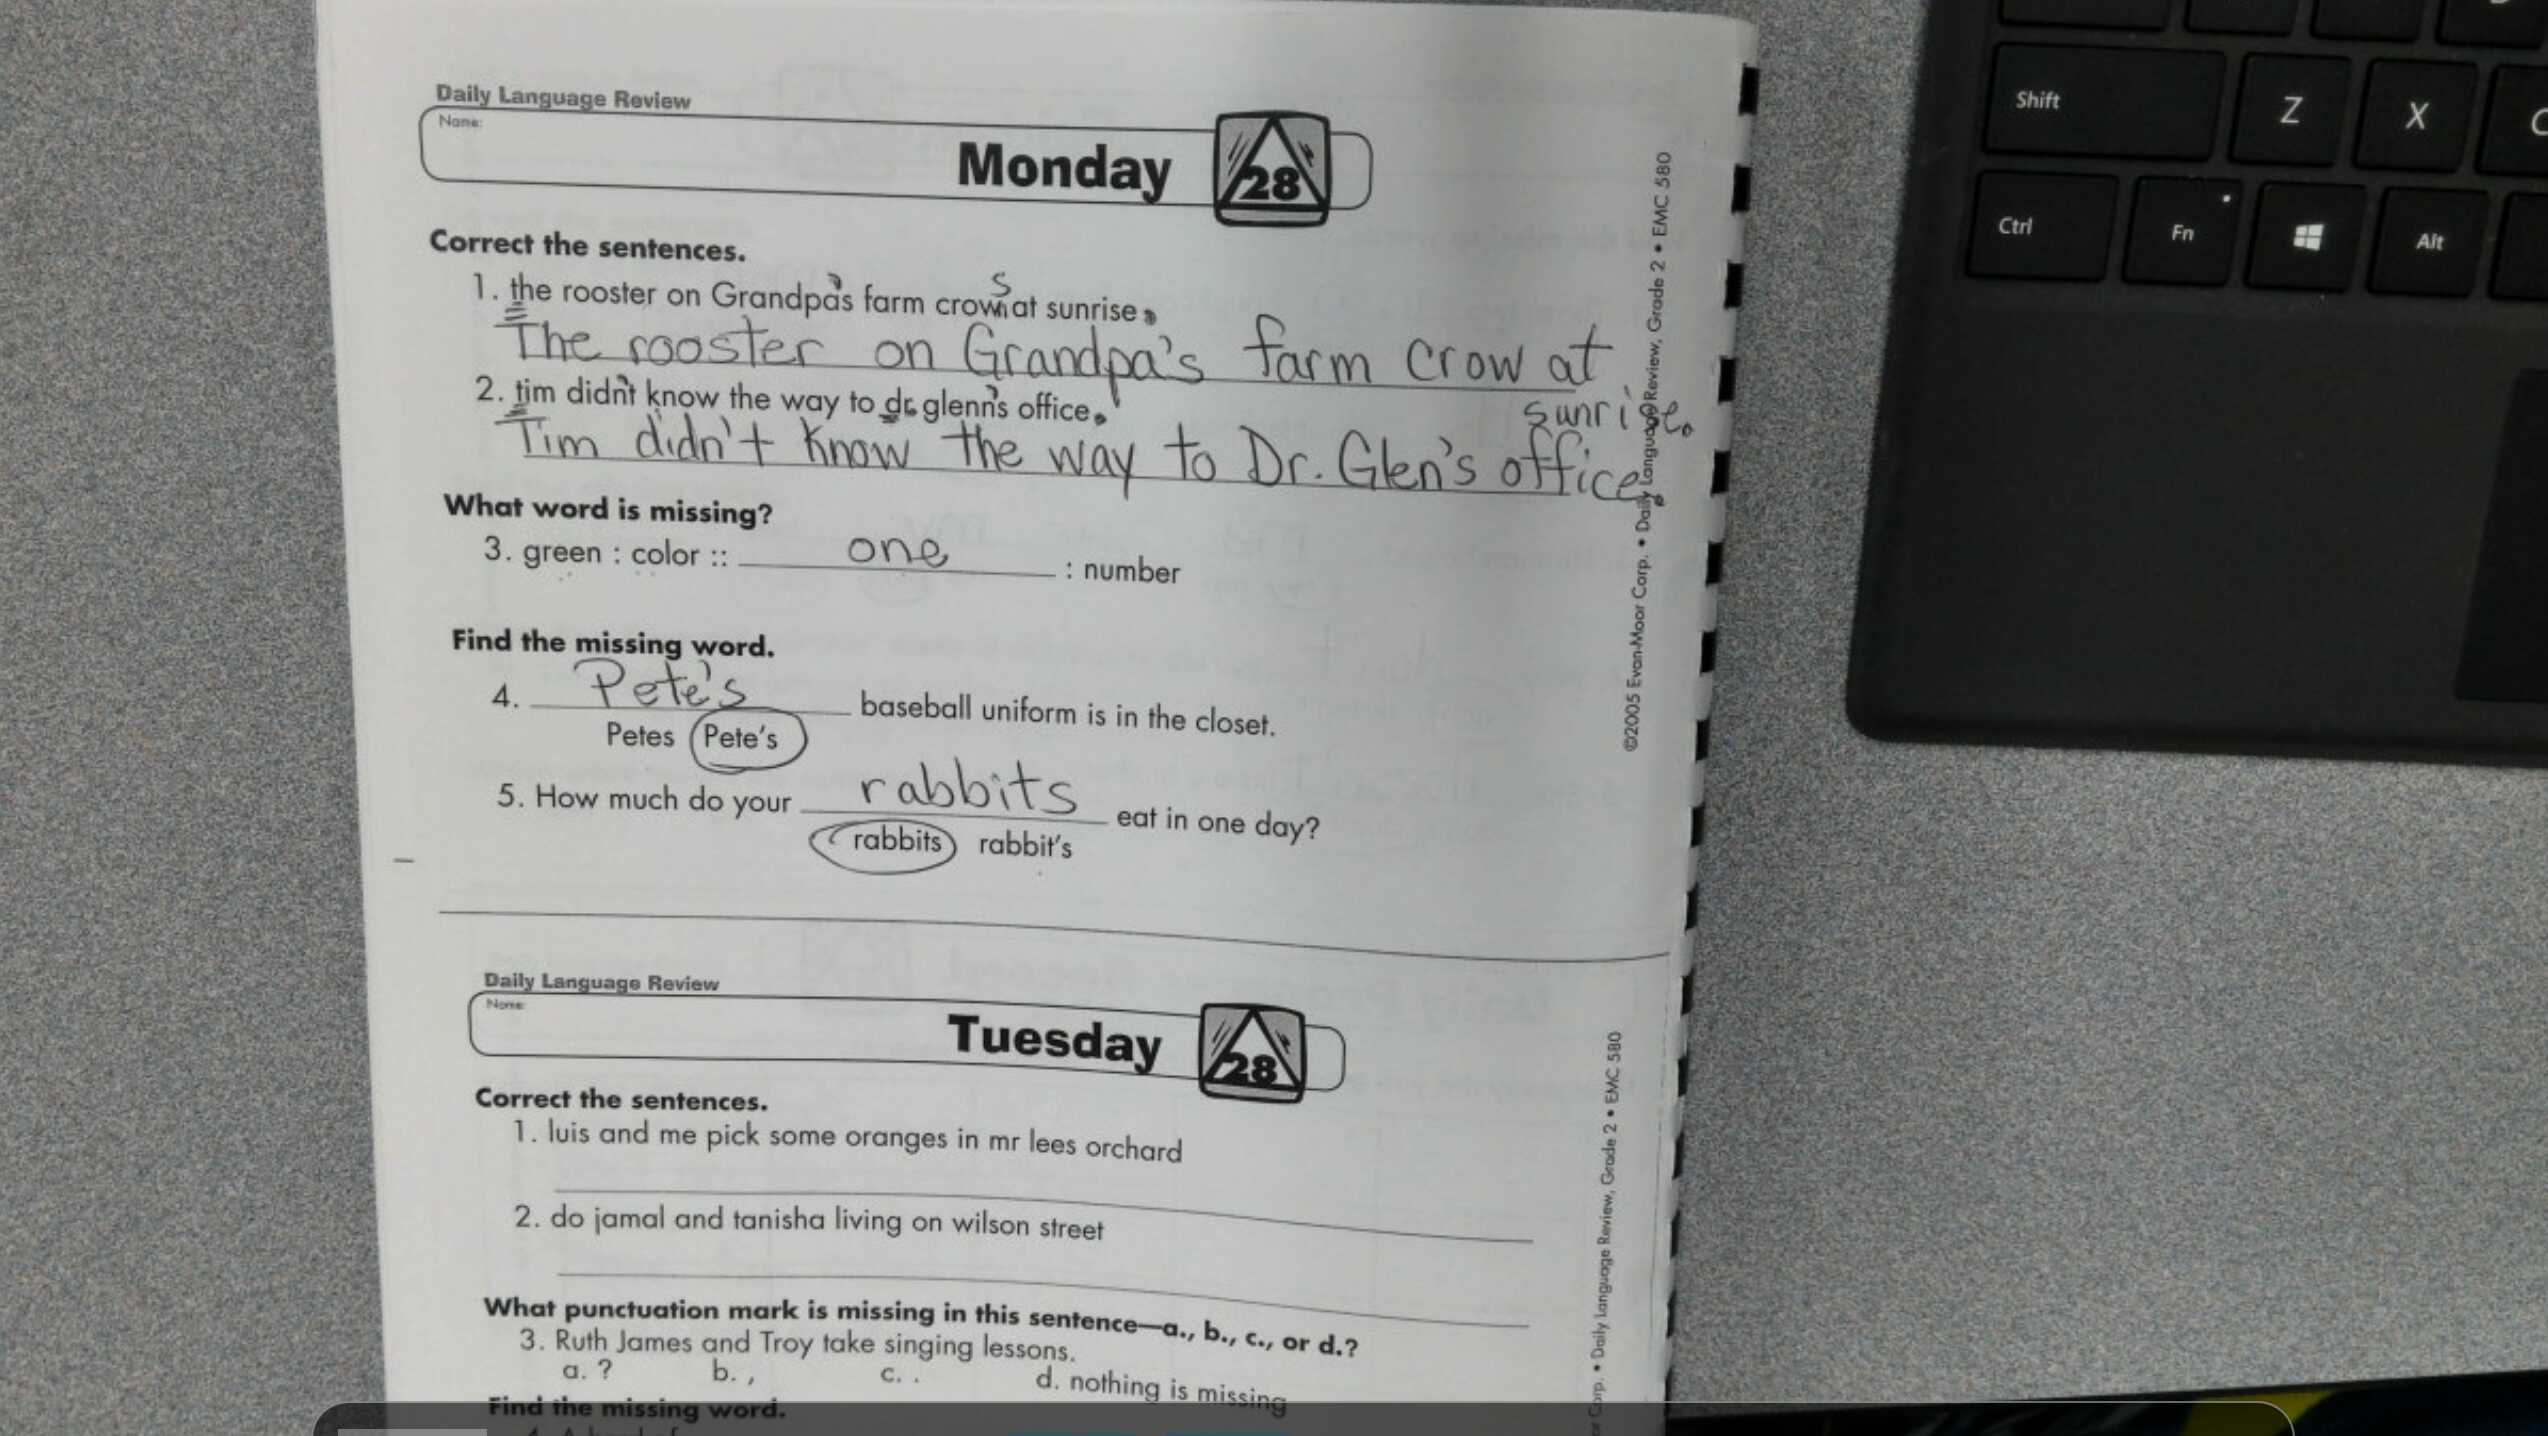 Daily Language Review
Name:
Monday
28
Correct the sentences.
1. the rooster on Grandpa's farm crows at sunrise.
The rooster on Grandpa's farm crow at
sunrise.
2. tim didn't know the way to dr. glenn's office.
Tim didn't know the way to Dr. Glen's office.
What word is missing?
3. green : color :: one : number
Find the missing word.
4. Pete's baseball uniform is in the closet.
Petes Pete's
5. How much do your rabbits eat in one day?
rabbits rabbit's
©2005 Evan-Moor Corp. • Daily Language Review, Grade 2 • EMC 580
Daily Language Review
Name:
Tuesday
28
Correct the sentences.
1. luis and me pick some oranges in mr lees orchard
2. do jamal and tanisha living on wilson street
What punctuation mark is missing in this sentence—a., b., c., or d.?
3. Ruth James and Troy take singing lessons.
a. ? b. , c. . d. nothing is missing
Find the missing word.
Corp. • Daily Language Review, Grade 2 • EMC 580
Shift Z X C
Ctrl Fn Alt